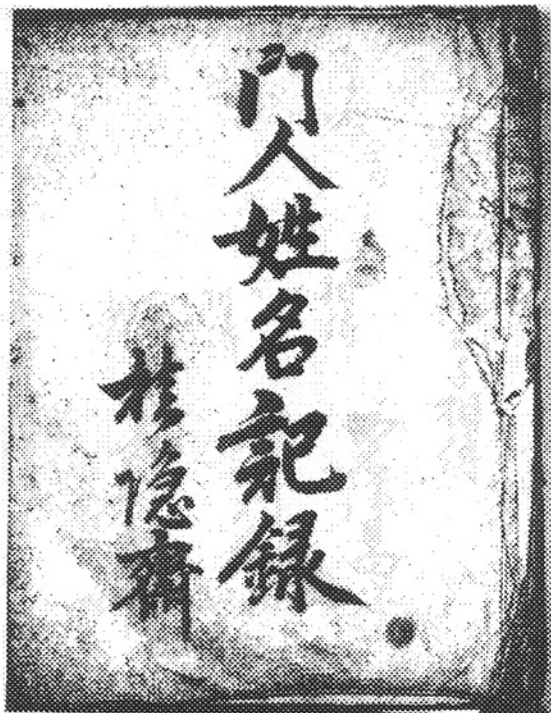 门人姓名記録
桂隐齋